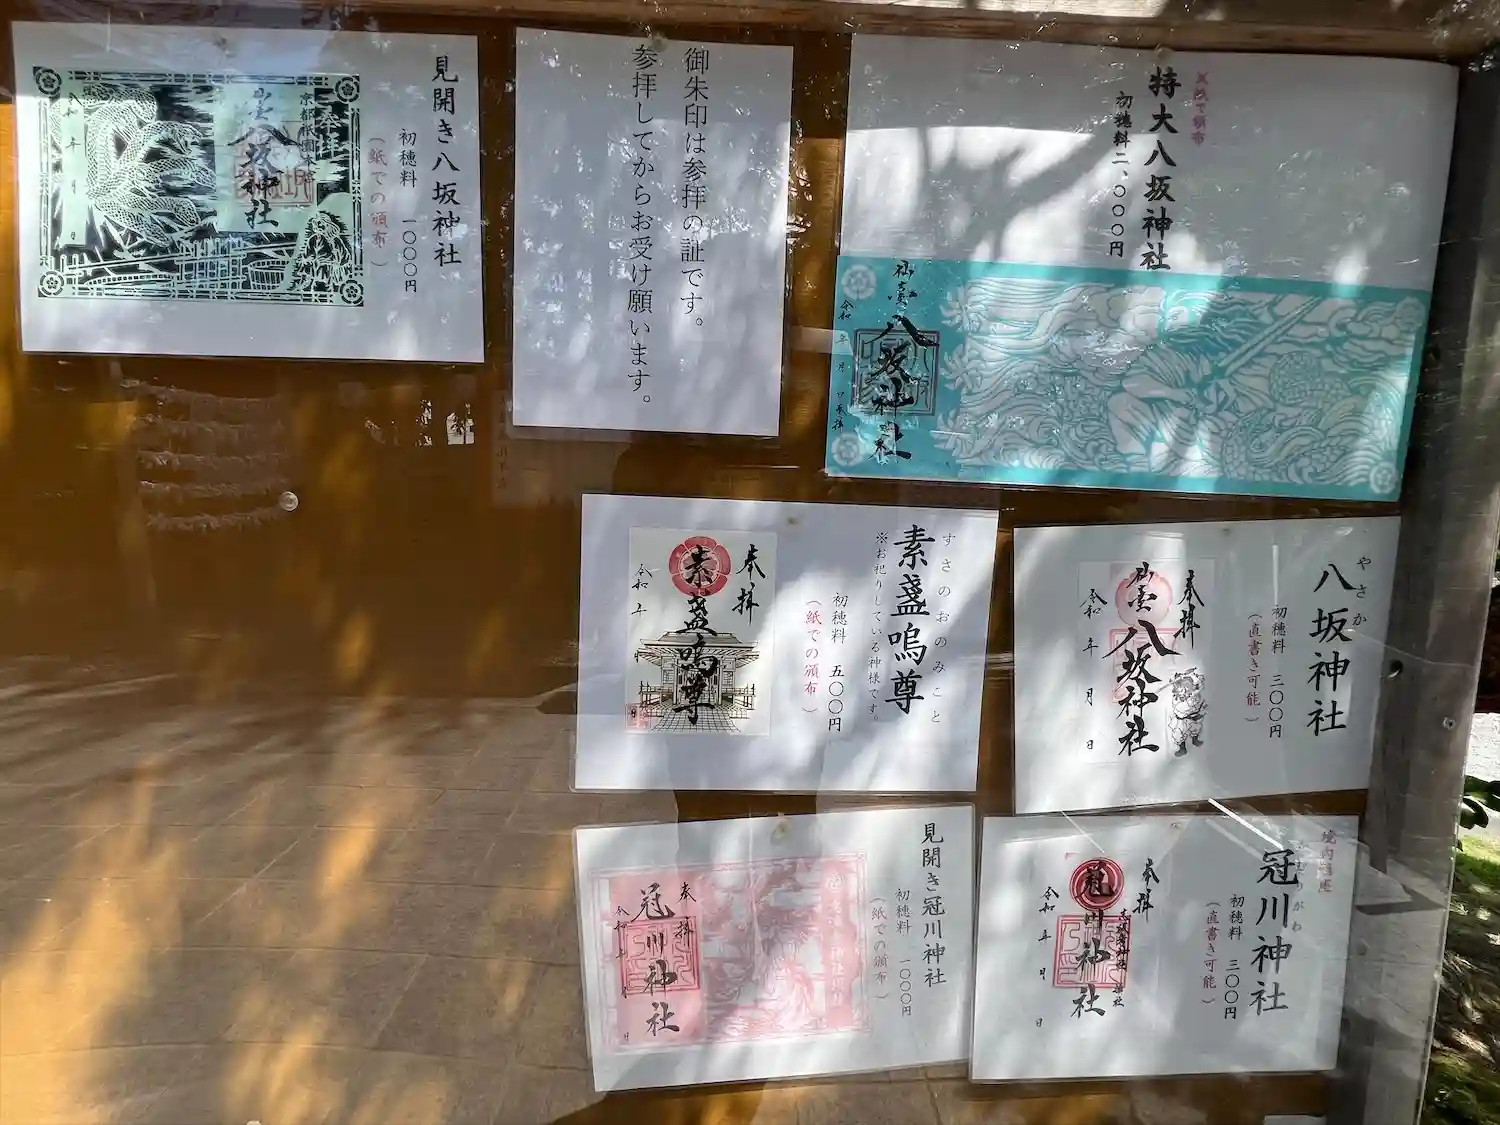 見開き八坂神社
初穂料 一〇〇〇円
(紙での頒布)
八坂神社
令和 年 月 日
御朱印は参拝の証です。
参拝してからお受け願います。
特大八坂神社
初穂料二、〇〇〇円
仙臺
八坂神社
令和 年 月
すさのおのみこと
素盞嗚尊
※お祀りしている神様です。
初穂料 五〇〇円
(紙での頒布)
奉拝
素盞嗚尊
令和 年
やさか
八坂神社
初穂料 三〇〇円
(直書き可能)
奉拝
仙臺
八坂神社
令和 年 月 日
見開き冠川神社
初穂料 一〇〇〇円
(紙での頒布)
奉拝
冠川神社
令和 年 月 日
冠川神社
初穂料 三〇〇円
(直書き可能)
奉拝
冠川神社
令和 年 月 日